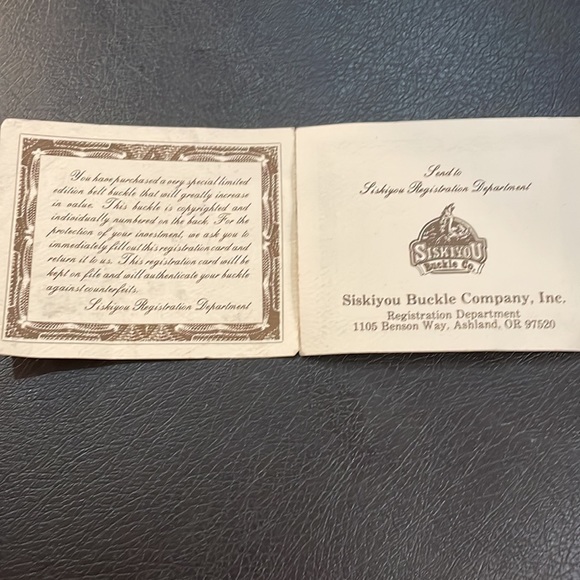 You have purchased a very special limited
edition belt buckle that will greatly increase
in value. This buckle is copyrighted and
individually numbered on the back. For the
protection of your investment, we ask you to
immediately fill out this registration card and
return it to us. This registration card will be
kept on file and will authenticate your buckle
against counterfeits.
Siskiyou Registration Department
Send to
Siskiyou Registration Department
SISKIYOU
Buckle Co.
Siskiyou Buckle Company, Inc.
Registration Department
1105 Benson Way, Ashland, OR 97520